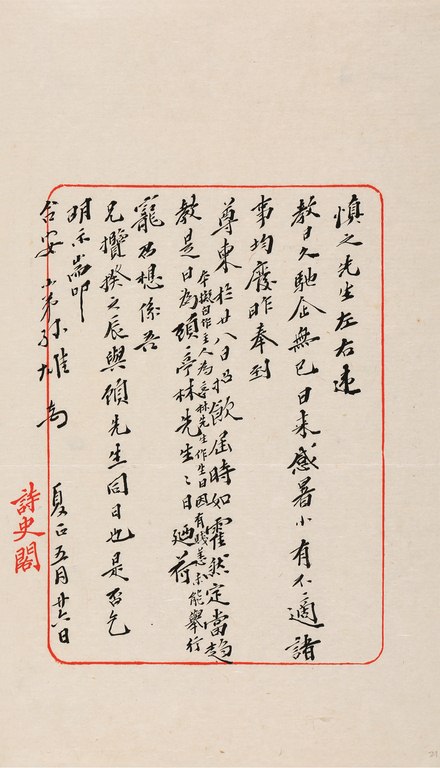 慎之先生左右違
教日久馳企無已日來感暑小有不適諸
事均廢昨奉到
尊柬於廿八日招飲屆時如霍然定當趨
教是日為顧亭林先生生日廼荷
本擬自作主人為亭林先生作生日因有賤恙未能舉行
寵召想係吾
兄攬揆之辰與顧先生同日也是否乞
明示耑叩
台安 小弟孫雄 夏正五月廿六日
詩史閣